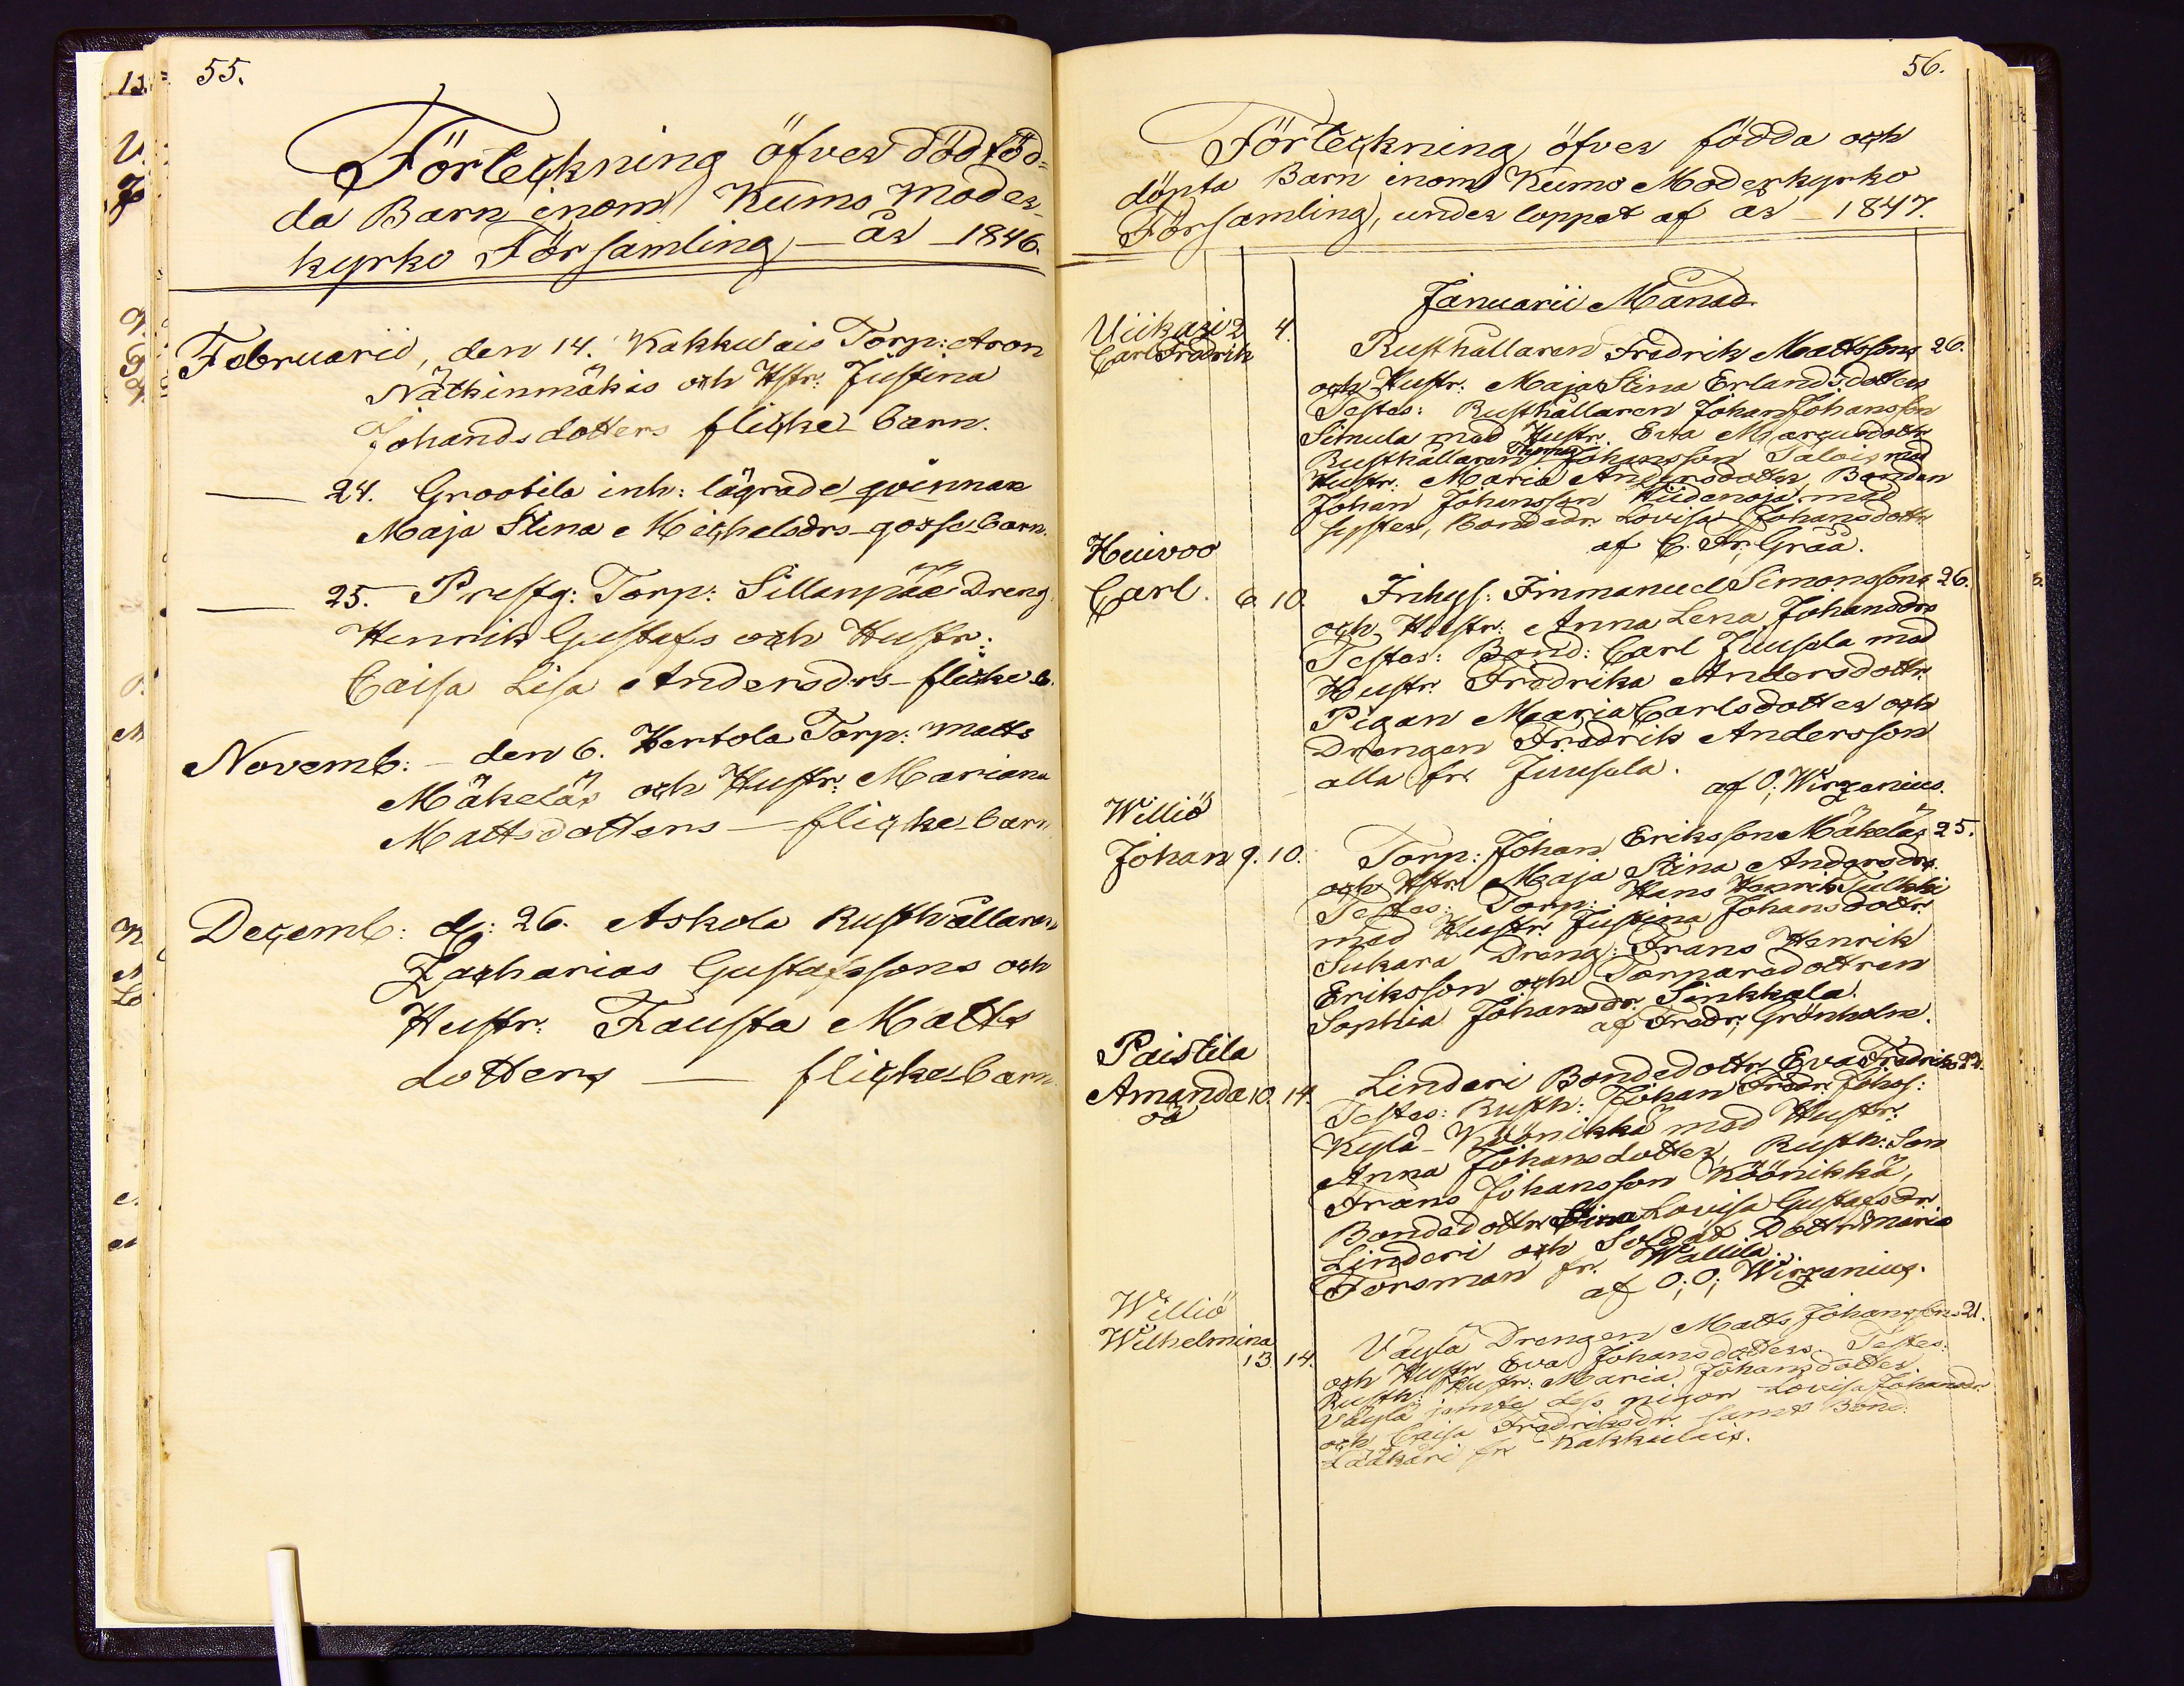 55.
Förteckning öfver dödföd=
da Barn inom Kumo Moder-
kyrko Församling, - år - 1846.
Februarii, den 14. Kakkulais Torp: Aron
Nätkinmäkis och Hstr: Justina
Johandsdotters flicke-barn.
24. Grootila inh: lägrade qvinnan
Maja Stina Michelsdrs - gosse-barn.
25. Prestg: Torp: Sillanpää Dreng.
Henrik Gustafs och Hustr:
Caisa Lisa Andersdrs - flicke-b.
Novemb: - den 6. Hertola Torp: Matts
Mäkeläs och Hustr: Mariana
Mattsdotters - flicke-barn
Decemb: d: 26. Askola Rusthållaren
Zacharias Gustafssons och
Hustr: Fausta Matts
dotters - flicke-barn.
56.
Förteckning öfver födda och
döpta Barn inom Kumo Moderkyrko
Församling, under loppet af år - 1847.
Januarii Månad.
Viikari 2 4. Rusthållaren Fredrik Mattssons 26.
Carl Fredrik
och Hustr: Maja Stina Erlandsdotters
Testes: Rusthållaren Johan Johansson
Simula med Hustr. Eva Marcusdottr
Rusthållaren Thomas Johansson Talois med
Hustr: Maria Andersdotter, Bonden
Johan Johansson Hiidenoja med
syster, Bondedr Lovisa Johansdottr
af C. Fr: Grää.
Huivoo
Carl. 6. 10. Inhys: Immanuel Simonssons 26.
och Hustr: Anna Lena Johansdrs
Testes: Bond: Carl Juusela med
Hustr. Fredrika Andersdottr.
Pigan Maria Carlsdotter och
Drengen Fredrik Andersson
alla fr. Juusela.
af O: Wirzenius.
Williö
Johan 9. 10. Torp: Johan Eriksson Mäkeläs 25.
och Hstr. Maja Stina Andersdrs
Testes: Torp: Hans Henrik Tulkki
med Hustr. Justina Johansdottr.
Sukara Dreng: Frans Henrik
Eriksson och Torparedottren
Sophia Johansdr. Sinkkala.
af Fredr: Grönholm.
Paistila
Amanda 10. 14. Linderi Bondedottr. Eva Fredriks 22.
oä
Testes: Rusth: Johan Fredr: Johos:
Kylä-Köönikkä med Hustr:
Anna Johansdotter, Rusth: Son
Frans Johansson Köönikkä,
Bondedottr. Stina Lovisa Gustafsdr
Linderi och Soldat Dottr. Maria
Forsman fr. Wallila.
af O: O: Wirzenius.
Williö
Wilhelmina
13. 14. Väylä Drengen Matts Johanssons 21.
och Hustr Eva Johansdotters. Testes:
Rusth: Hustr: Maria Johansdotter
Väylä jemte dess pigor Lovisa Johansdr.
och Caisa Fredriksdr. samt Bond:
Lääkäri fr Kakkulais.